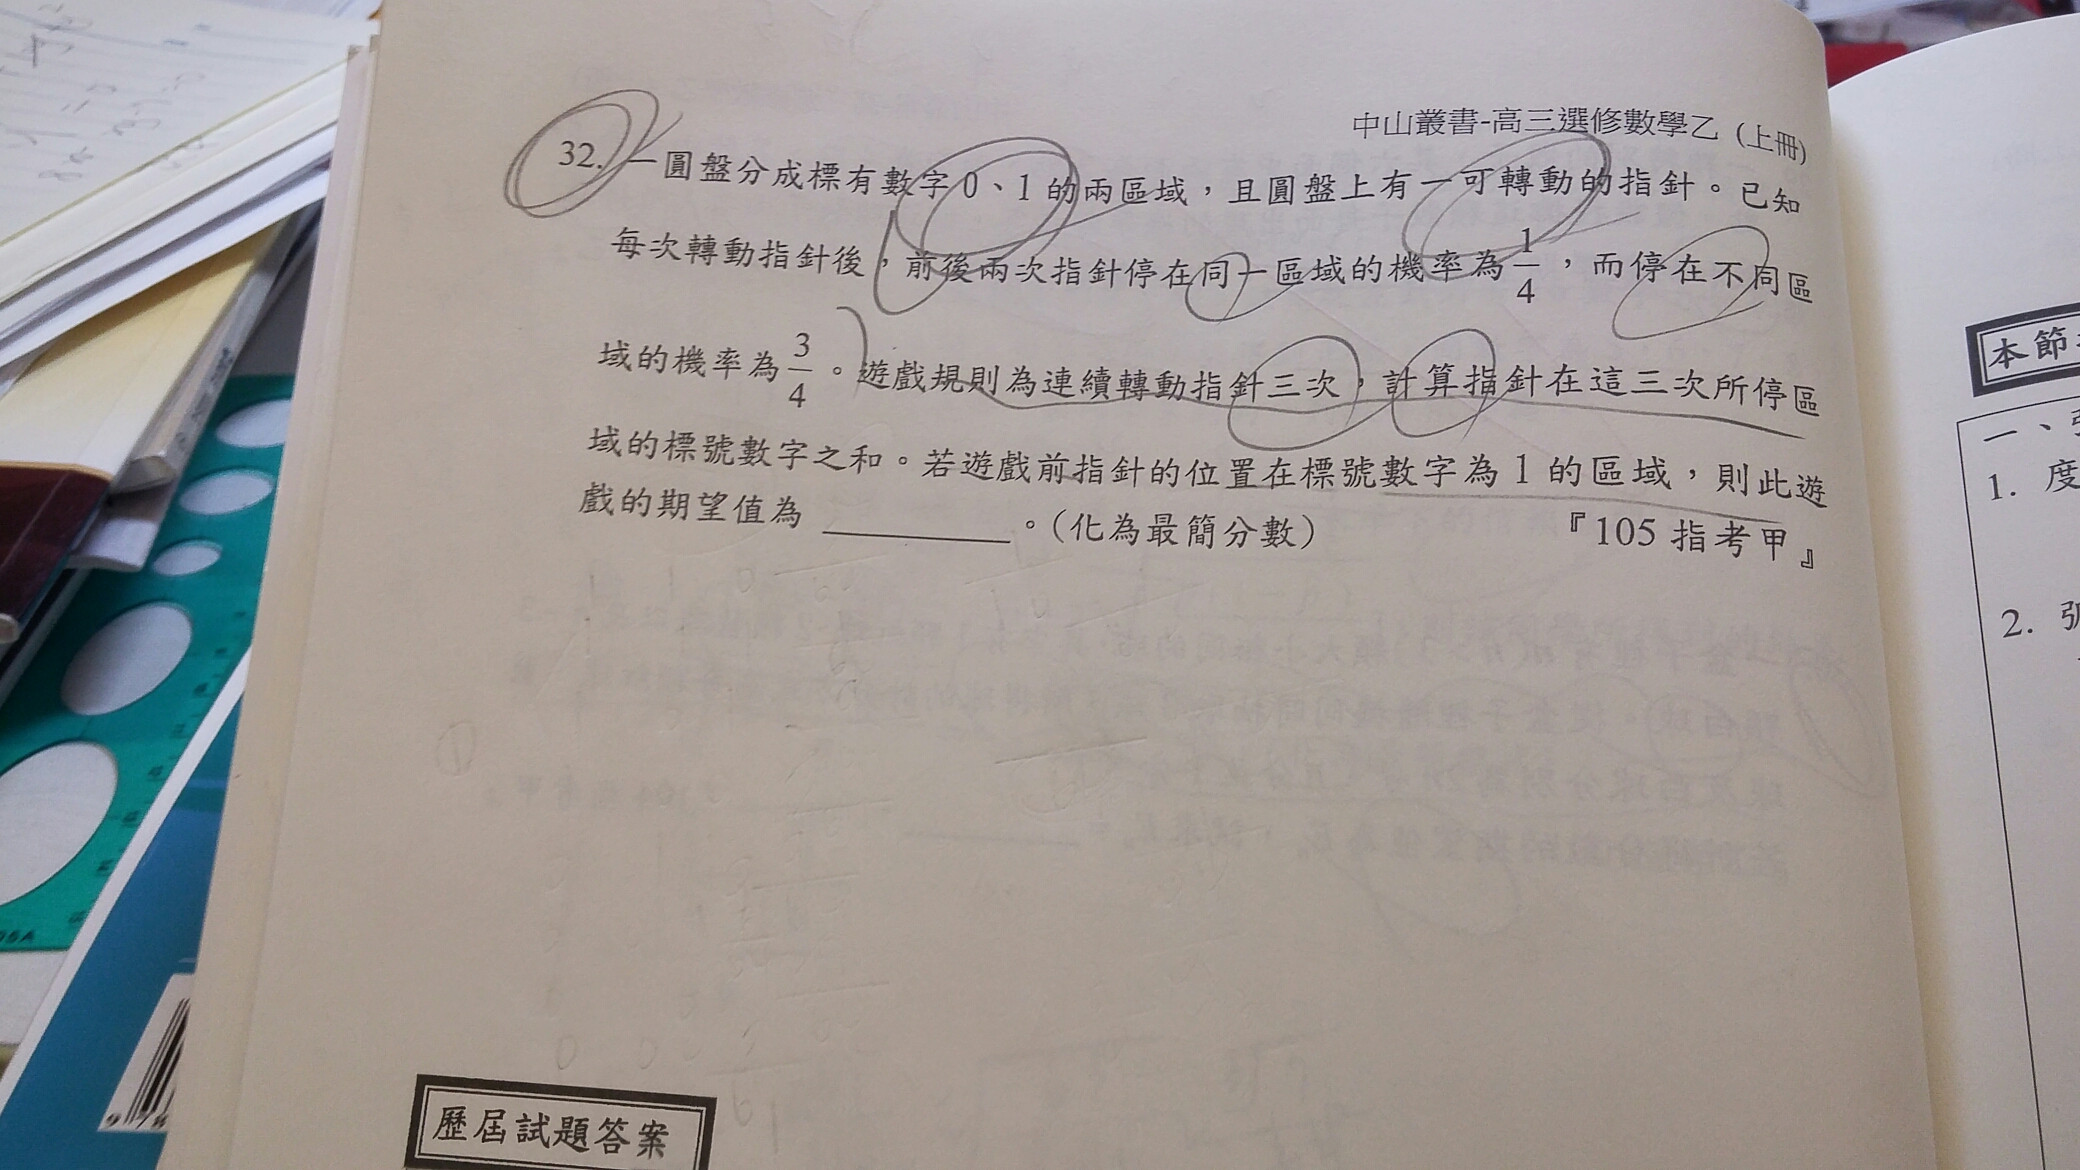 中山叢書-高三選修數學乙(上冊)
32. 一圓盤分成標有數字0、1的兩區域，且圓盤上有一可轉動的指針。已知
每次轉動指針後，前後兩次指針停在同一區域的機率為1/4，而停在不同區
域的機率為3/4。遊戲規則為連續轉動指針三次，計算指針在這三次所停區
域的標號數字之和。若遊戲前指針的位置在標號數字為1的區域，則此遊
戲的期望值為______。(化為最簡分數) 『105指考甲』
歷屆試題答案
本節
一、
1. 度
2.